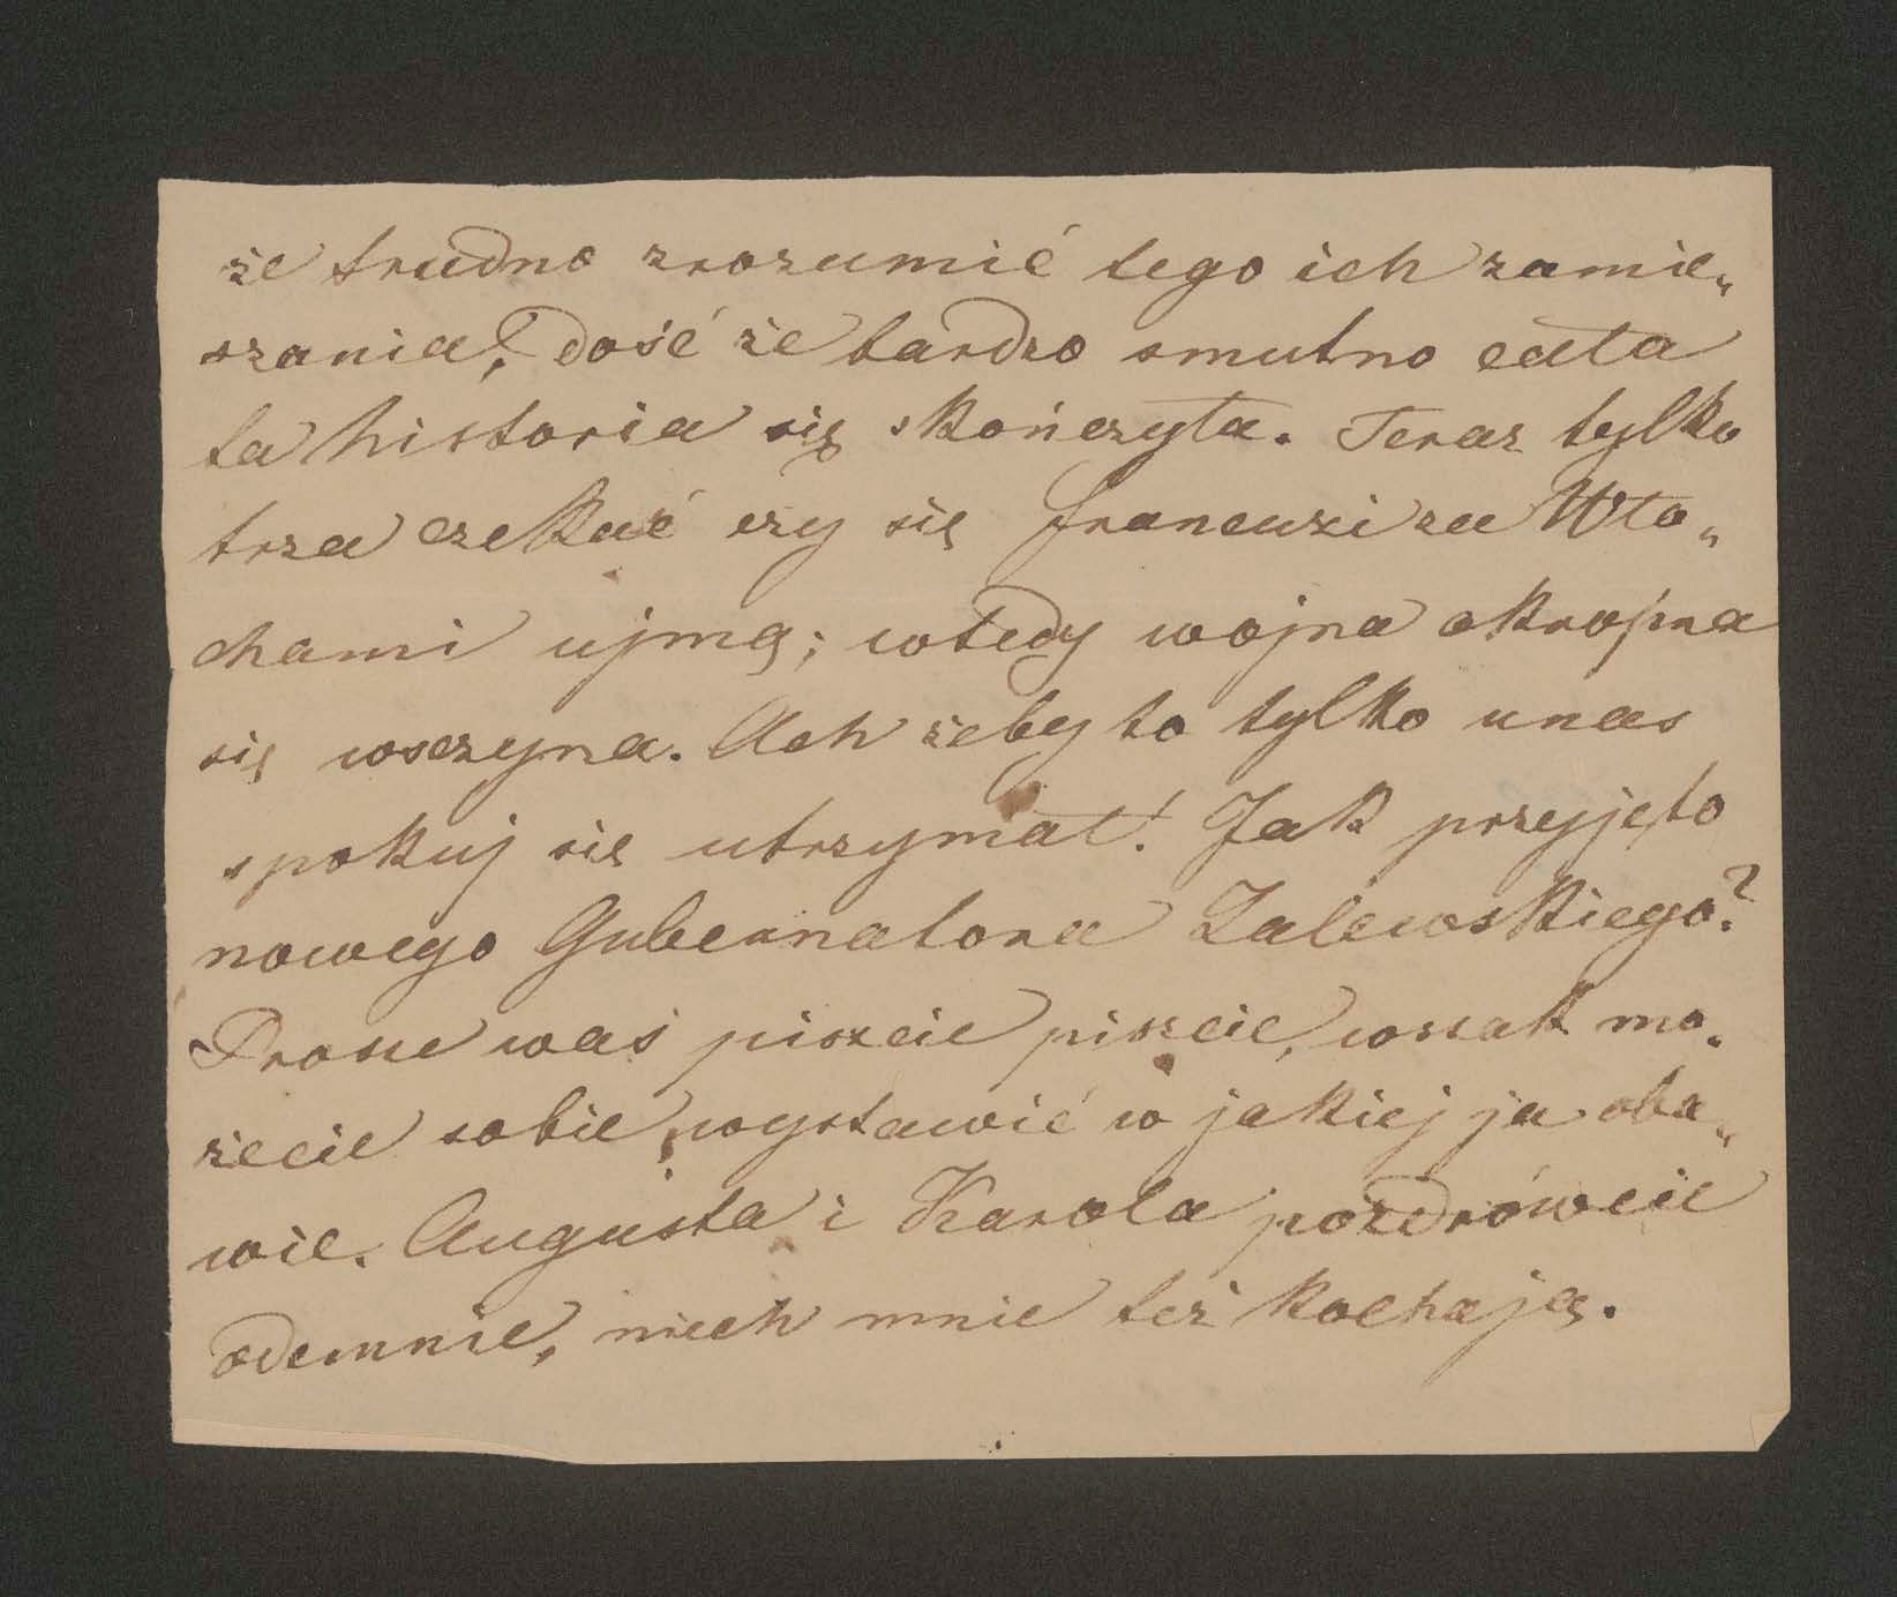 że trudno zrozumić tego ich zamie„
szania; dość że bardzo smutno cała
ta historia się skończyła. Teraz tylko
trza czekać czy się francuzi za Wło„
chami ujmą; wtedy wojna okropna
się wszczyna. Ach żeby to tylko unas
spokuj się utrzymał! Jak przyjęto
nowego Gubernatora Zalewskiego?
Prosze was piszcie piszcie, wszak mo„
żecie sobie wystawić w jakiej ja oba„
wie. Augusta i Karola pozdrówcie
odemnie, niech mnie też kochają.